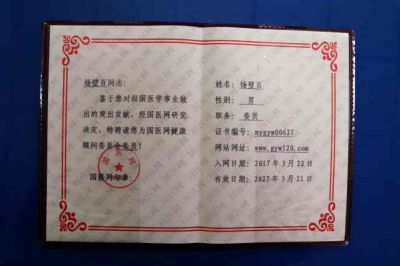 杨壁百同志:
鉴于您对祖国医学事业做
出的突出贡献，经国医网研究
决定，特聘请您为国医网健康
顾问委员会委员！
国医网印章:
姓名: 杨壁百
性别: 男
职务: 委员
证书编号: mygyw00627
网站网址: www.gyw120.com
入网日期: 2017年3月22日
有效日期: 2027年3月21日